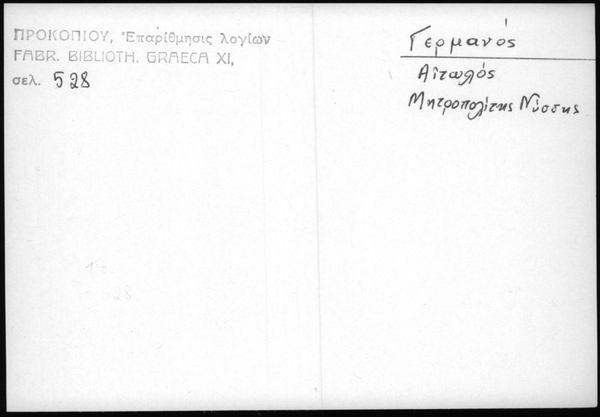 ΠΡΟΚΟΠΙΟΥ, Ἐπαρίθμησις λογίων
FABR. BIBLIOTH. GRAECA XI,
σελ. 528
Γερμανός
Αἰτωλός
Μητροπολίτης Νύσσης